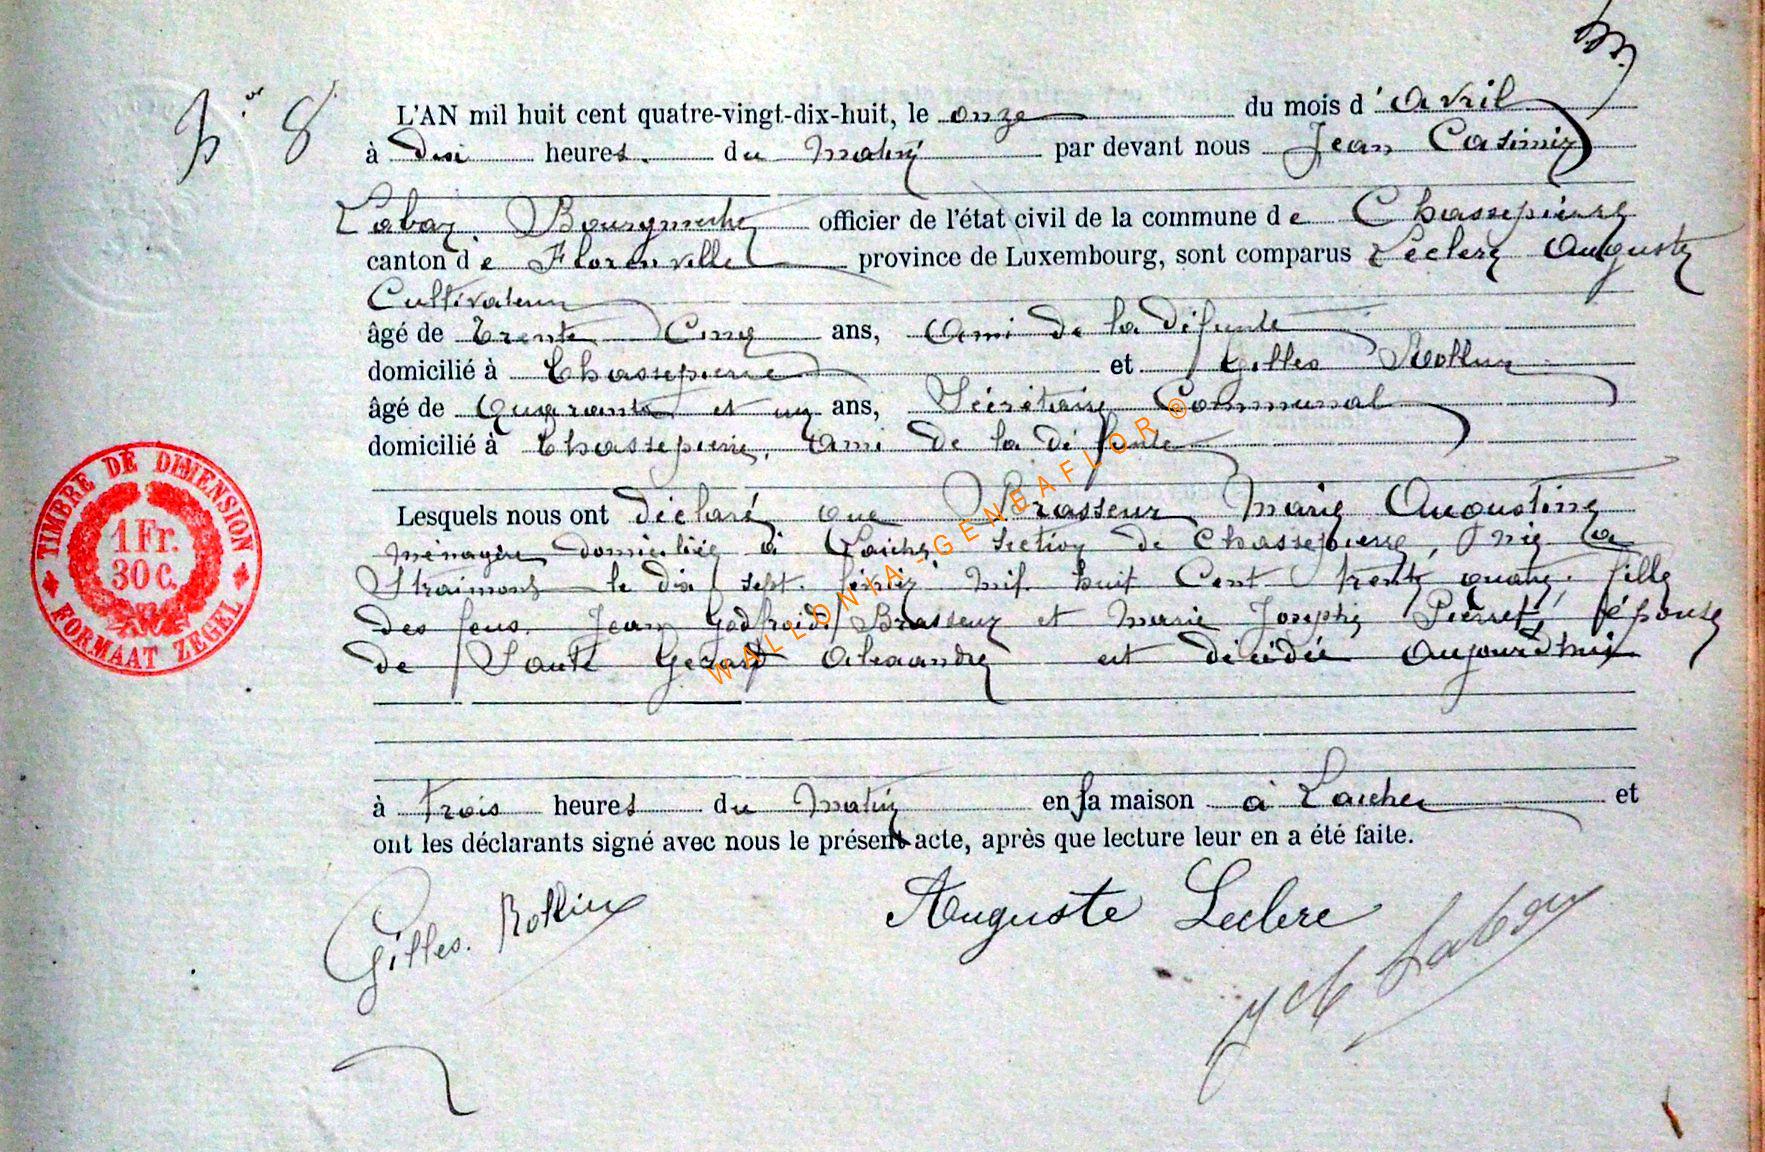 N° 8
L'AN mil huit cent quatre-vingt-dix-huit, le onze du mois d'Avril
à dix heures du Matin par devant nous Jean Casimir
Labar Bourgmestre officier de l'état civil de la commune de Chassepierre
canton de Florenville province de Luxembourg, sont comparus Leclere Auguste
Cultivateur
âgé de trente Cinq ans, Ami de la défunte
domicilié à Chassepierre et Gilles Rollin
âgé de Quarante et un ans, Sécrétaire Communal
domicilié à Chassepierre, Ami de la défunte
Lesquels nous ont déclaré que Brasseur Marie Augustine
ménagère domiciliée à Laiche section de Chassepierre, née à
Straimont le dix sept février mil huit Cent trente quatre, fille
des feus Jean Godfroid Brasseur et Marie Josephe Pierret, épouse
de Gerard Alexandre est décédée aujourd'hui
à trois heures du matin en sa maison à Laiche et
ont les déclarants signé avec nous le présent acte, après que lecture leur en a été faite.
Gilles Rollin Auguste Leclere J C Labar
TIMBRE DE DIMENSION
1 Fr.
30 C.
FORMAAT ZEGEL
WALLONIA-GENEAFLOR ©